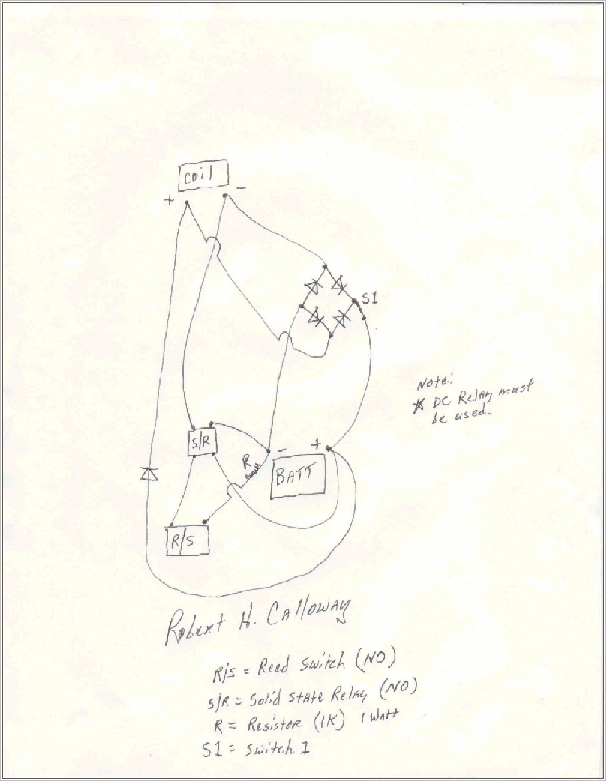 coil
+ -
S1
Note:
* DC Relay must
be used.
S/R
R
- +
BATT
R/S
Robert H. Calloway
R/S = Reed Switch (NO)
S/R = Solid State Relay (NO)
R = Resistor (1K) 1 Watt
S1 = Switch 1